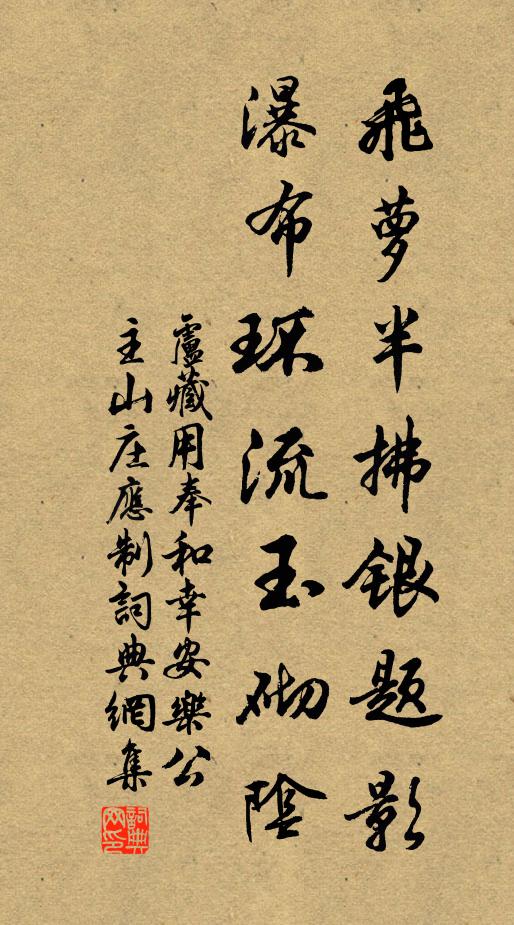 飛蘿半拂銀題影
瀑布環流玉砌陰
盧藏用奉和幸安樂公
主山庄應制詞典網集
詞典網印